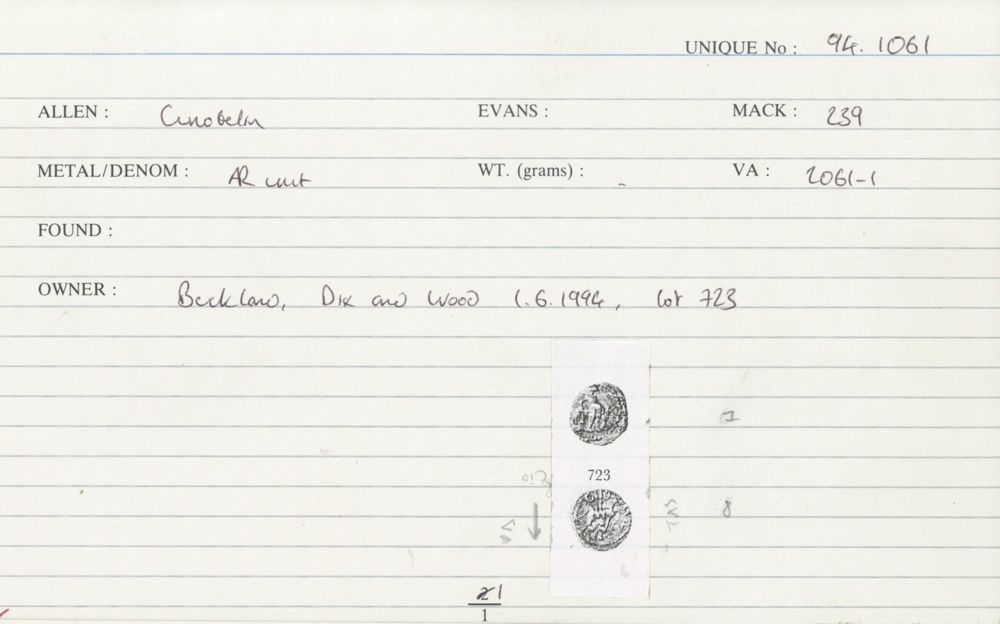 UNIQUE No : 94. 1061
ALLEN : Cunobelin EVANS : MACK : 239
METAL/DENOM : AR unit WT. (grams) : - VA : 2061-1
FOUND :
OWNER : Dix and Wood 1.6.1994, lot 723
723
8
21
1